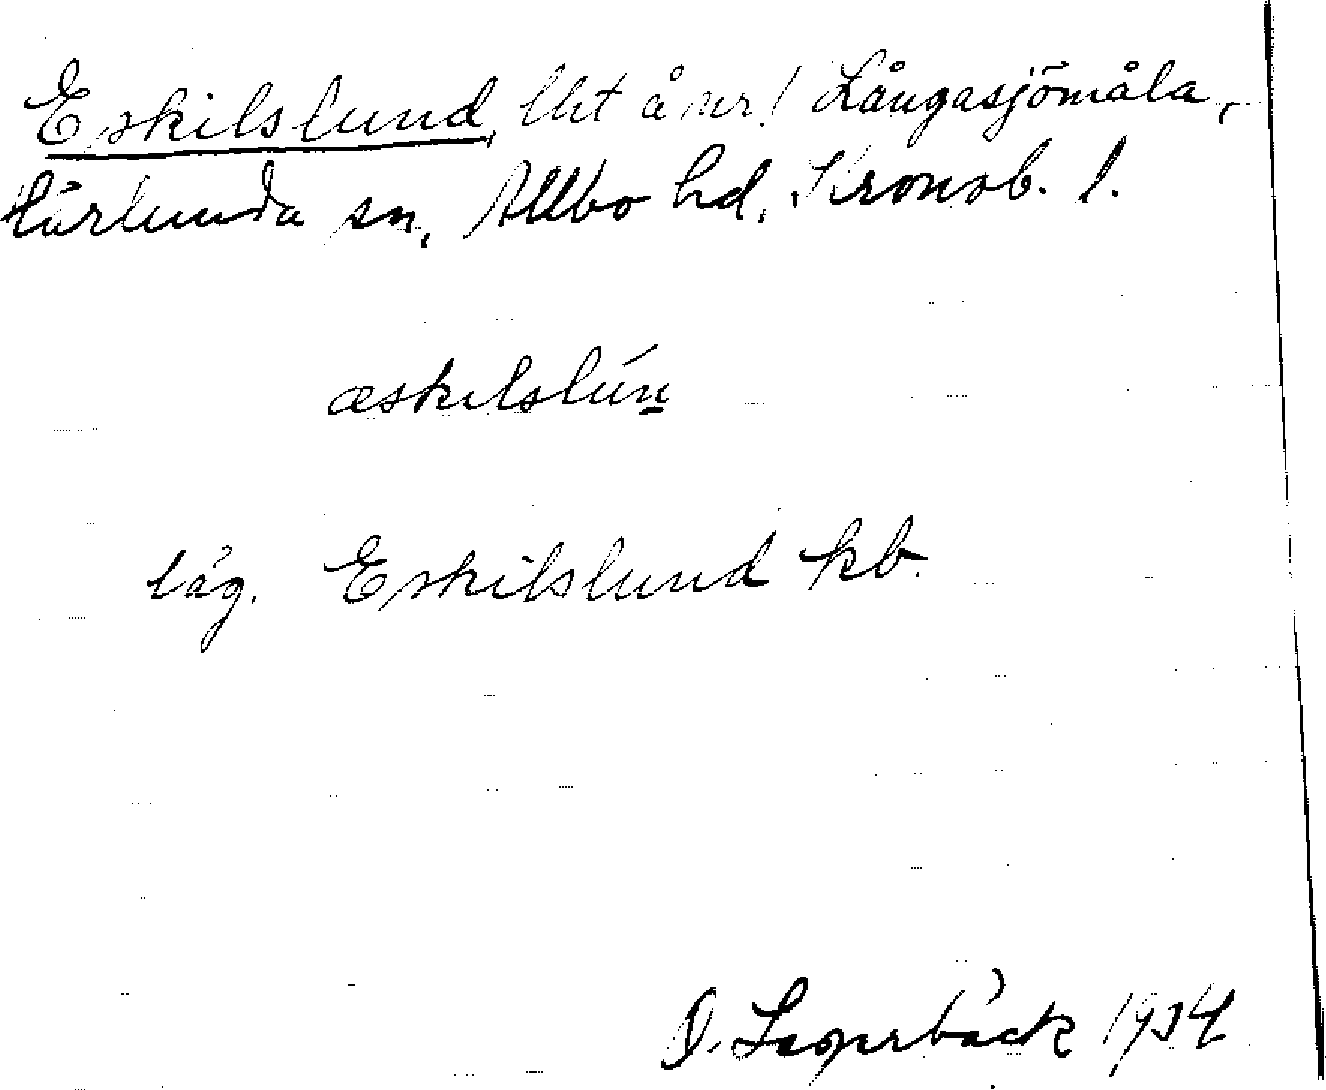 Eskilslund, lht å nr 1 Långasjömåla,
Härlunda sn, Allbo hd, Kronob. l.
æskilslún
läg. Eskilslund kb.
O. Lagerbäck 1934